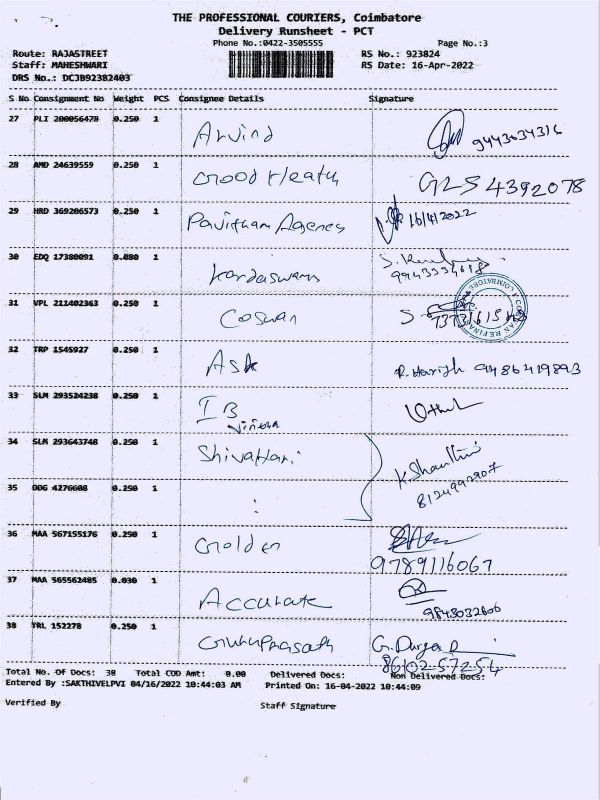 THE PROFESSIONAL COURIERS, Coimbatore
Delivery Runsheet - PCT
Phone No.:0422-3505555 Page No.:3
Route: RAJASTREET RS No.: 923824
Staff: MAHESHWARI RS Date: 16-Apr-2022
DRS No.: DCJB92382403
S No Consignment No Weight PCS Consignee Details Signature
27 PLI 200056478 0.250 1 Arvind 9443634316
28 AMD 24639559 0.250 1 Good Heath GLS 4392078
29 HRD 369206573 0.250 1 Pavitham Agencs 16/4/2022
30 EDQ 17380091 0.080 1 Kandaswam
31 VPL 211402363 0.250 1 Coswan
32 TRP 1545927 0.250 1 Ask R. Harish 9486419893
33 SLM 293524238 0.250 1 IB
34 SLM 293643748 0.250 1 Shivahari K. Shanthi
8124992907
35 OOG 4276608 0.250 1
36 MAA 567155176 0.250 1 Golden
9789116067
37 MAA 565562485 0.030 1 Accurate
9843032606
38 TRL 152278 0.250 1 Guruprasath G. Durga D
86102 57254
Total No. Of Docs: 38 Total COD Amt: 0.00 Delivered Docs: Non Delivered Docs:
Entered By :SAKTHIVELPVI 04/16/2022 10:44:03 AM Printed On: 16-04-2022 10:44:09
Verified By Staff Signature